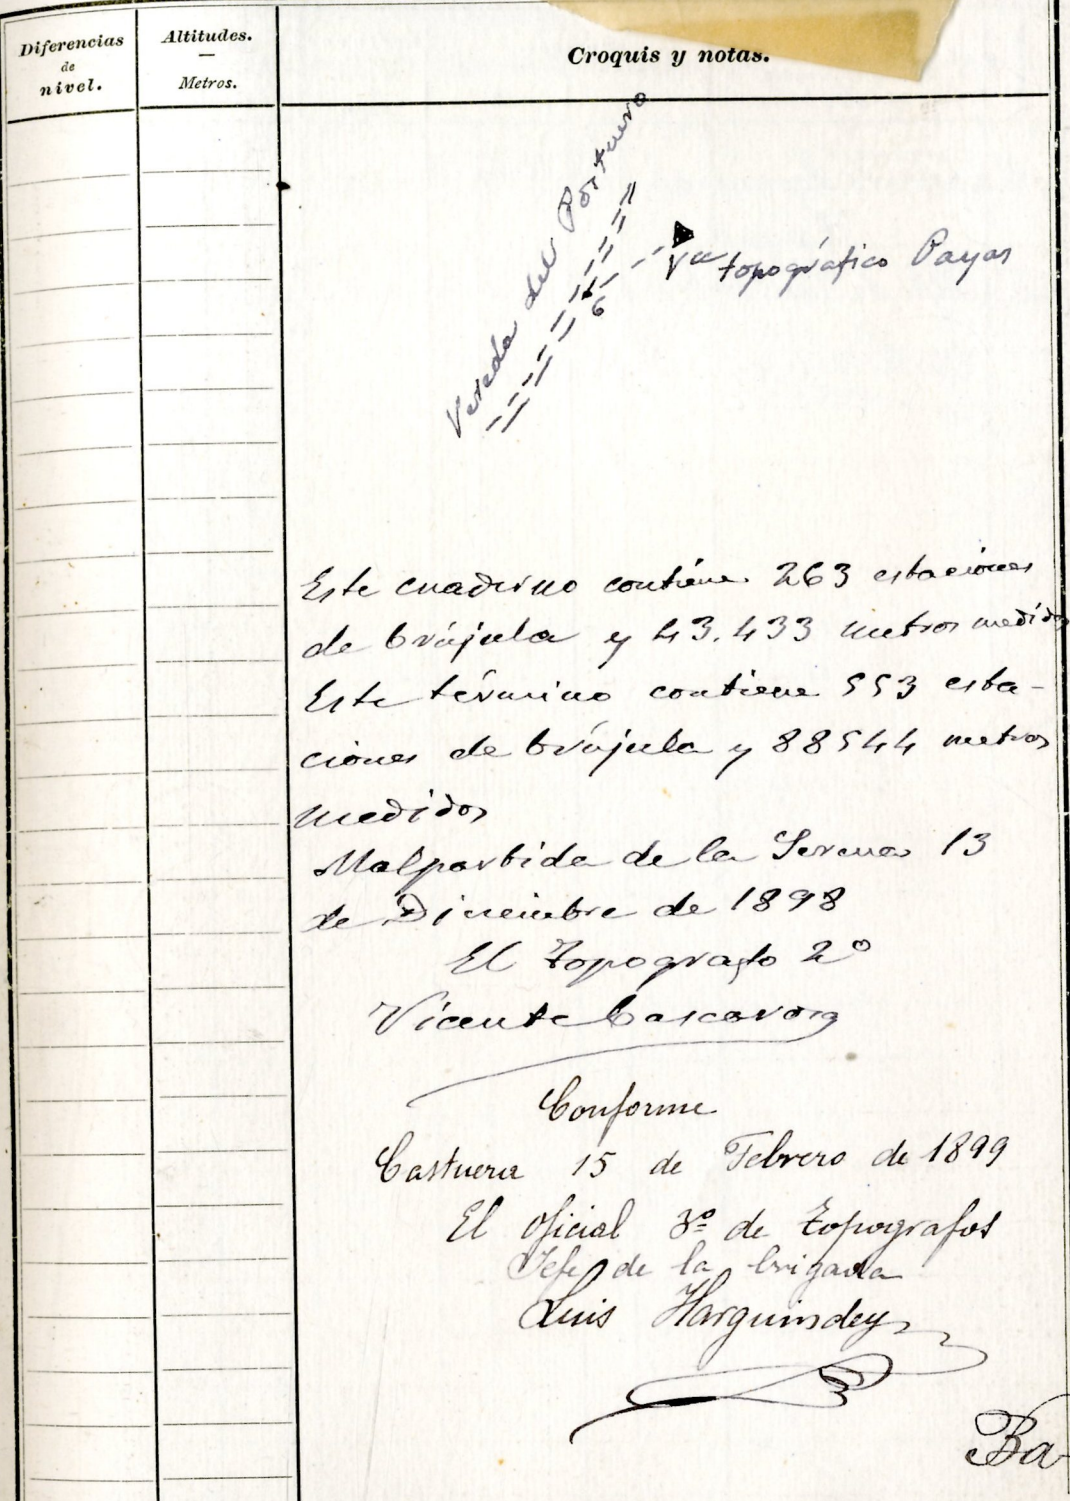 Diferencias
de
nivel.
Altitudes.
Metros.
Croquis y notas.
Vereda del Portuero
6
Vce topográfico Payas
Este cuaderno contiene 263 estaciones
de brújula y 43.433 metros medidos
Este término contiene 553 esta-
ciones de brújula y 88544 metros
medidos
Malpartida de la Serena 13
de Diciembre de 1898
El Topografo 2º
Vicente Cascarosa
Conforme
Castuera 15 de Febrero de 1899
El Oficial 3º de Topografos
Jefe de la brigada
Luis Harguindey
Ba